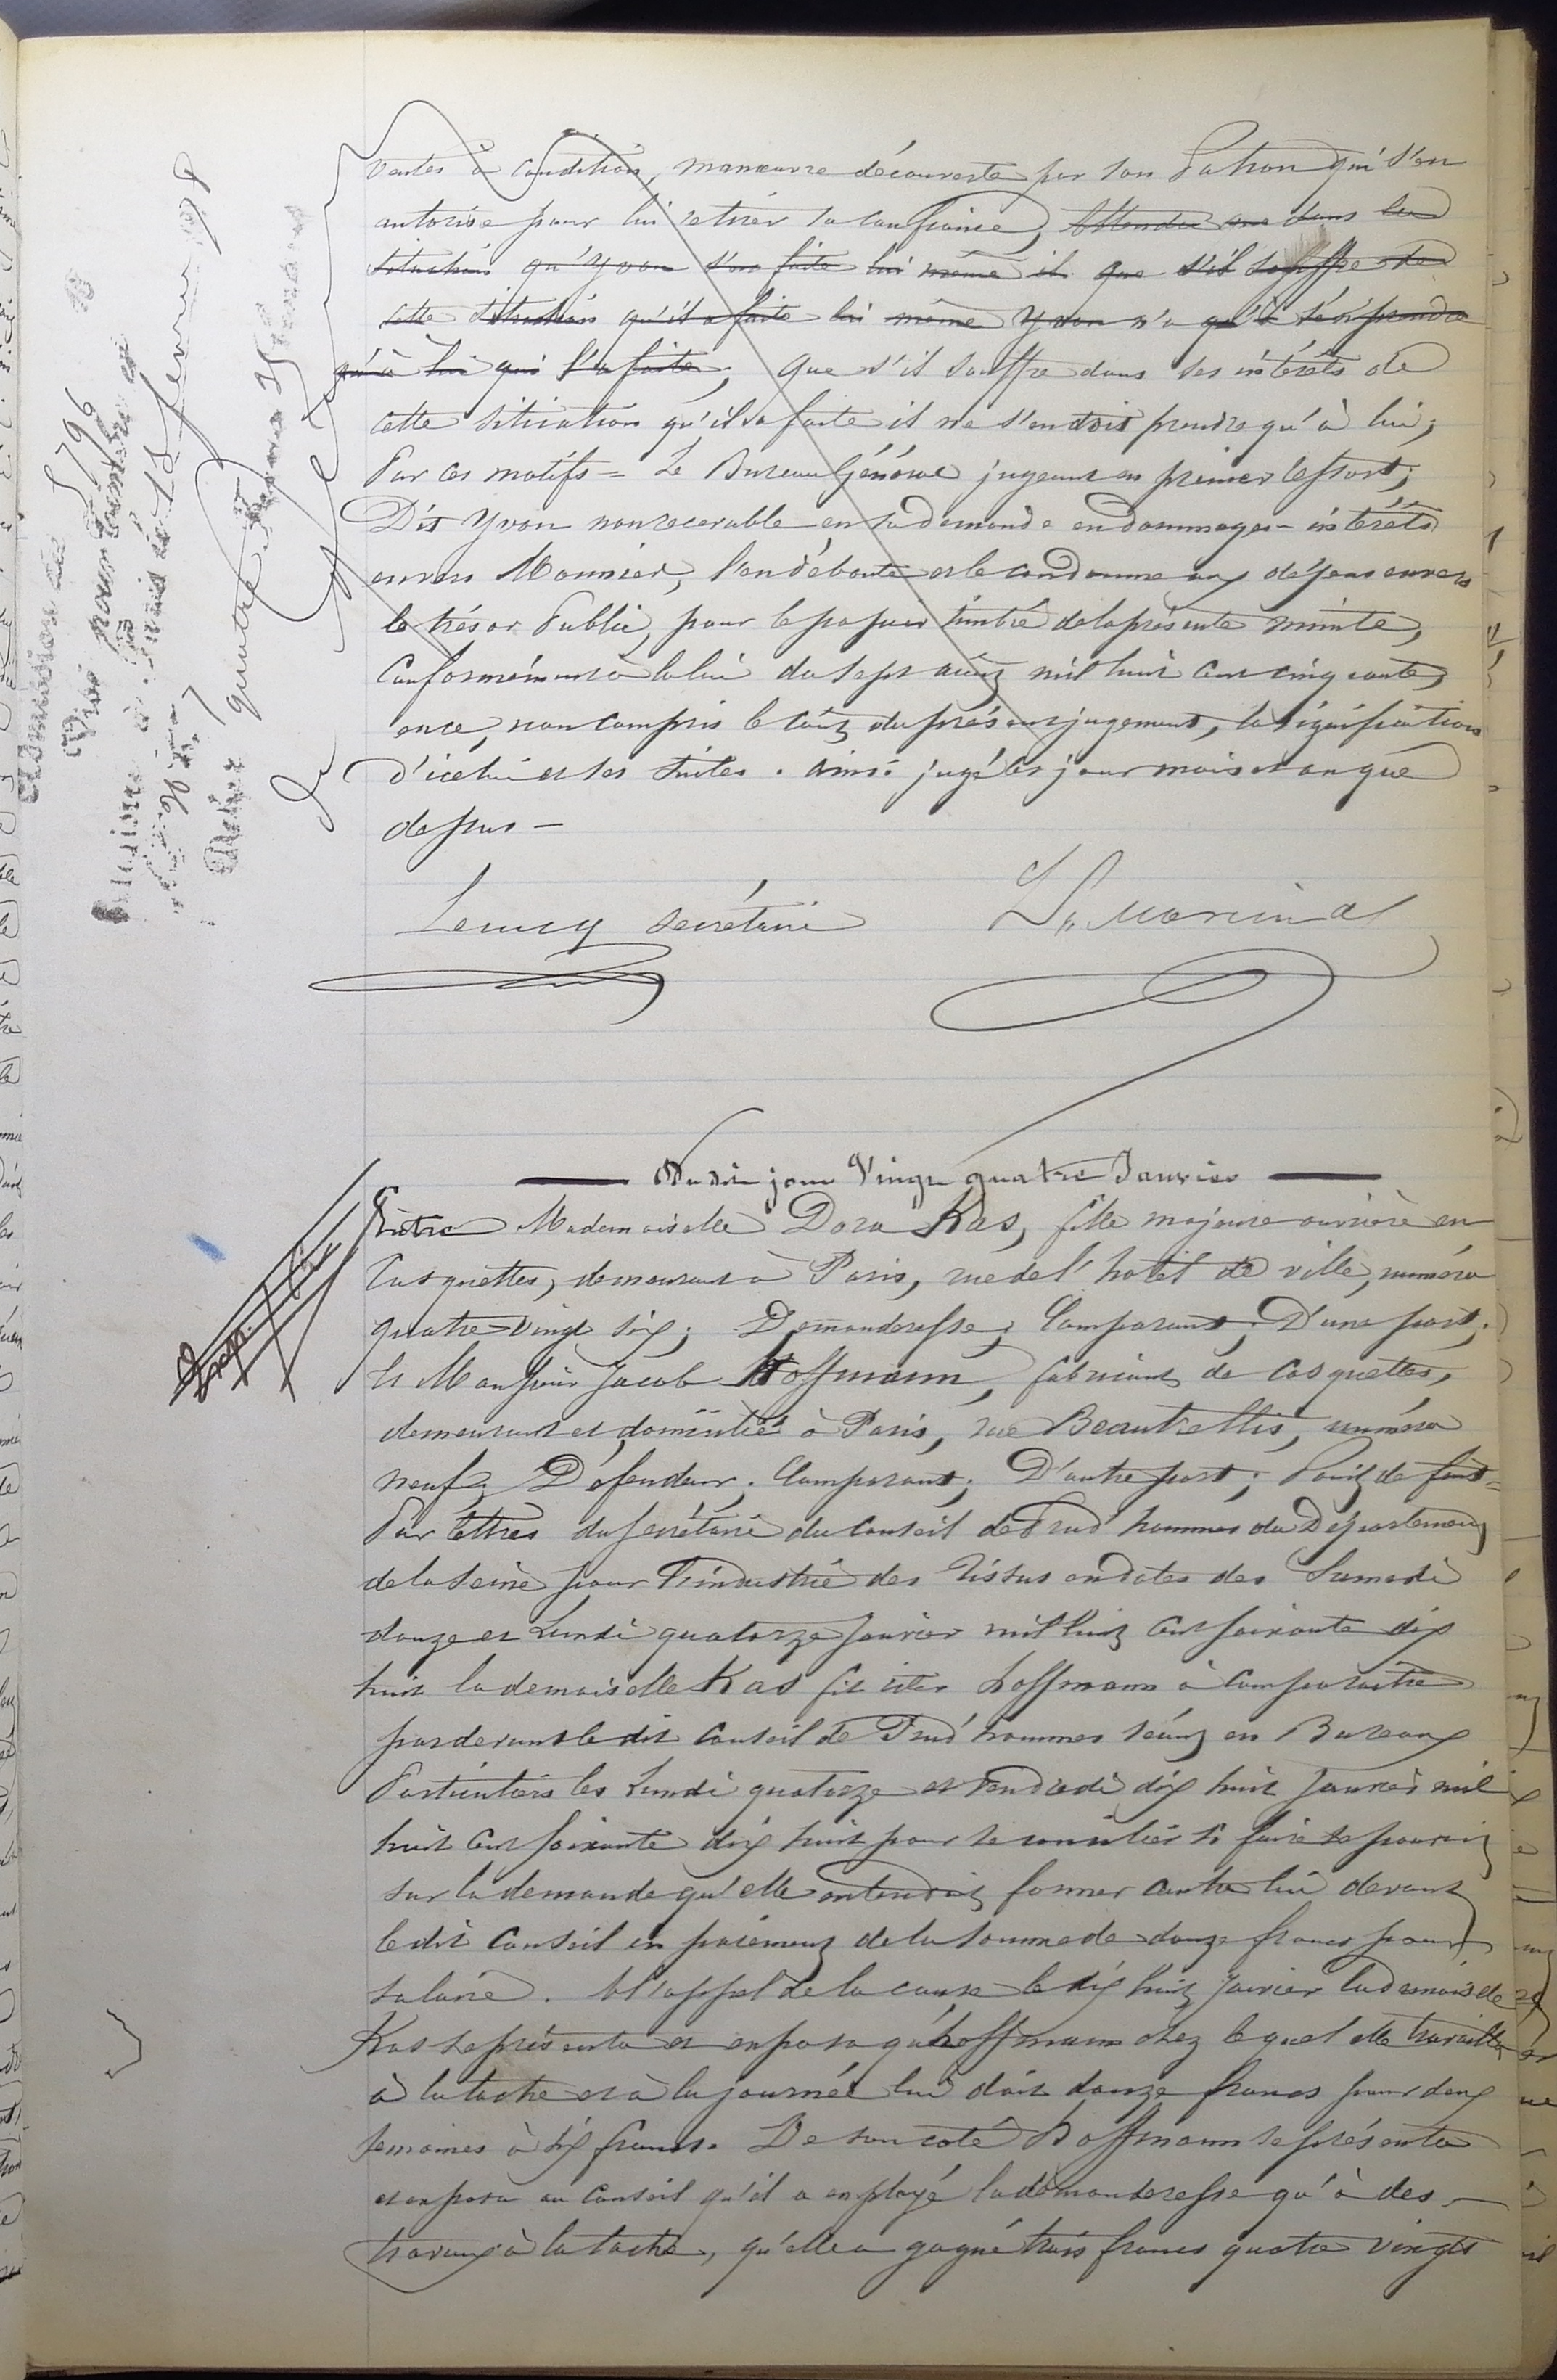 ventes à condition, manœuvre découverte par son Patron qui s'en
autorise pour lui retirer sa confiance, Attendu que dans la
situation qu'Yvon s'en faite lui même il que s'il souffre de
cette situation qu'il a faite lui même Yvon n'a qu'à s'en prendre
qu'à lui qui l'a faite; que s'il souffre dans ses intérêts de
cette situation qu'il a faite il ne s'en doit prendre qu'à lui;
Par ces motifs = Le Bureau Général jugeant en premier ressort;
Dit Yvon non recevable en sa demande en dommages-intérêts
envers Monnier, l'en déboute et le condamne aux dépens envers
le trésor Public, pour le papier timbré de la présente minute,
conformément à la loi du sept août mil huit cent cinquante,
ence, non compris le coût du présent jugement, la signification
d'icelui et ses suites. Ainsi jugé les jour mois et an que
dessus —
Lecucq secrétaire
Du dit jour Vingt quatre Janvier
Entre Mademoiselle Dora Kas, fille majeure ouvrière en
casquettes, demeurant à Paris, rue de l'hotel de ville, numéro
quatre vingt six; Demanderesse; Comparant; D'une part;
Et Monsieur Jacob Hoffmann, fabricant de casquettes,
demeurant et domicilié à Paris, rue Beautrellis, numéro
neuf; Défendeur; Comparant; D'autre part; Point de fait =
Par lettres du secrétaire du Conseil de Prud'hommes du Département
de la Seine pour l'industrie des Tissus en dates des Samedi
douze et Lundi quatorze Janvier mil huit cent soixante dix
huit la demoiselle Kas fit citer hoffmann à comparaitre
par devant le dit Conseil de Prud'hommes séant en Bureaux
Particuliers les Lundi quatorze et Vendredi dix huit Janvier mil
huit cent soixante dix huit pour se concilier si faire se pouvait
sur la demande qu'elle entendait former contre lui devant
le dit Conseil en paiement de la somme de douze francs pour
salaire. A l'appel de la cause le dix huit Janvier la demoiselle
Kas se présenta et exposa qu'hoffmann chez lequel elle travailla
à la tache et à la journée lui doit douze francs pour deux
semaines à six francs. De son coté Hoffmann se présenta
et exposa au Conseil qu'il a employé la demanderesse qu'à des
travaux à la tache, qu'elle a gagné trois francs quatre vingts